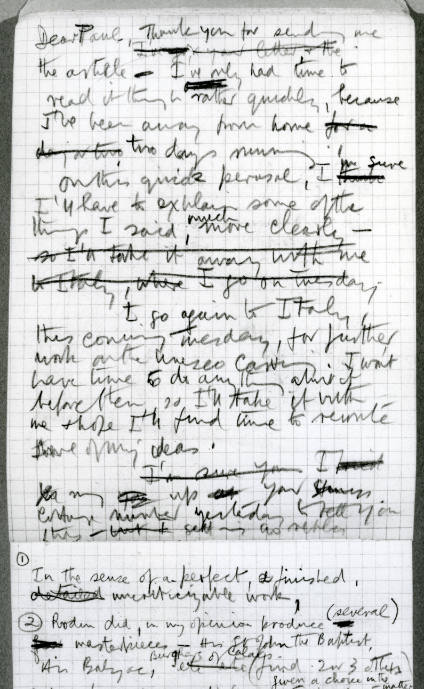 Dear Paul, Thank you for sending me
letter & the
the article – I've only had time to
read it through rather quickly, because
I've been away from home for a
day or two, two days running.
on this quick perusal, I'm sure
I'll have to explain some of the
things I said, much more clearly –
so I'll take it away with me
to Italy, where I go on Tuesday
I go again to Italy,
this coming Tuesday, for further
work on the Unesco carving. I wont
have time to do anything about it
before then, so I'll take it with
me & hope I'll find time to rewrite
some of my ideas.
I'm sure you I
up your
number yesterday to tell you
this – but
①
In the sense of a perfect, finished,
detailed uncriticizable work,
② Rodin did, in my opinion produce (several)
masterpieces – His St John the Baptist,
His Balzac, Burghers of Calais, (find 2 or 3 others)
given a choice in the matter